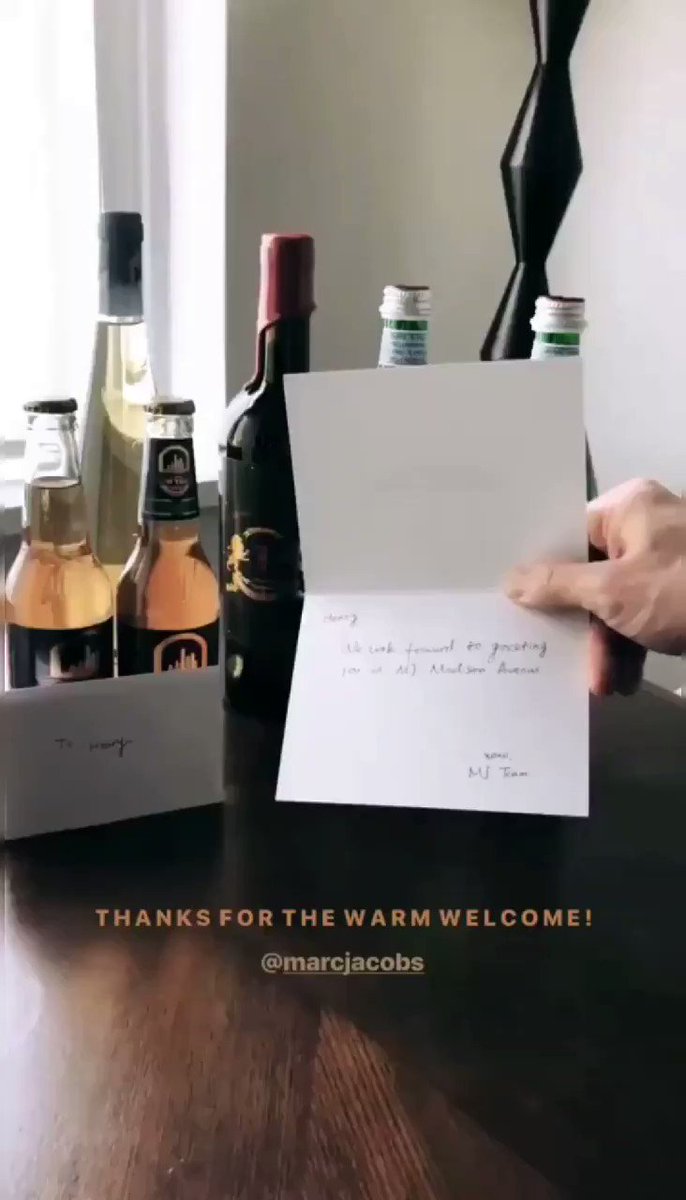 Henry
We look forward to greeting
you at MJ Madison Avenue
xoxo,
MJ Team
To Henry
THANKS FOR THE WARM WELCOME!
@marcjacobs